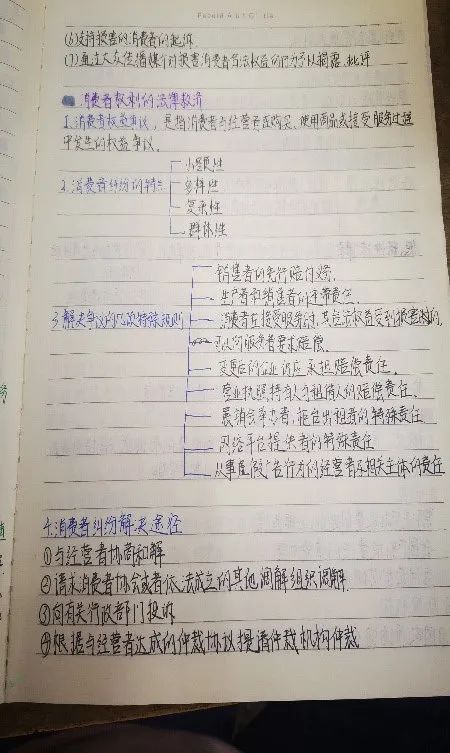 (6)支持损害的消费者的起诉
(7)通过大众传播媒介对损害消费者合法权益的行为予以揭露、批评
消费者权利的法律救济
1.消费者权益争议,是指消费者与经营者在购买、使用商品或接受服务过程
中发生的权益争议.
2.消费者纠纷的特点
小额性
多样性
复杂性
群体性
3.解决争议的几项特殊规则
销售者的先行赔付义务.
生产者和销售者的连带责任.
消费者在接受服务时,其合法权益受到损害时,
可以向服务者要求赔偿.
变更后的企业仍应承担赔偿责任.
营业执照持有人与租借人的赔偿责任.
展销会举办者,柜台出租者的特殊责任
网络平台提供者的特殊责任
从事虚假广告行为的经营者及相关主体的责任
4.消费者纠纷解决途径
①与经营者协商和解
②请求消费者协会或者依法成立的其他调解组织调解.
③向有关行政部门投诉
④根据与经营者达成的仲裁协议提请仲裁机构仲裁